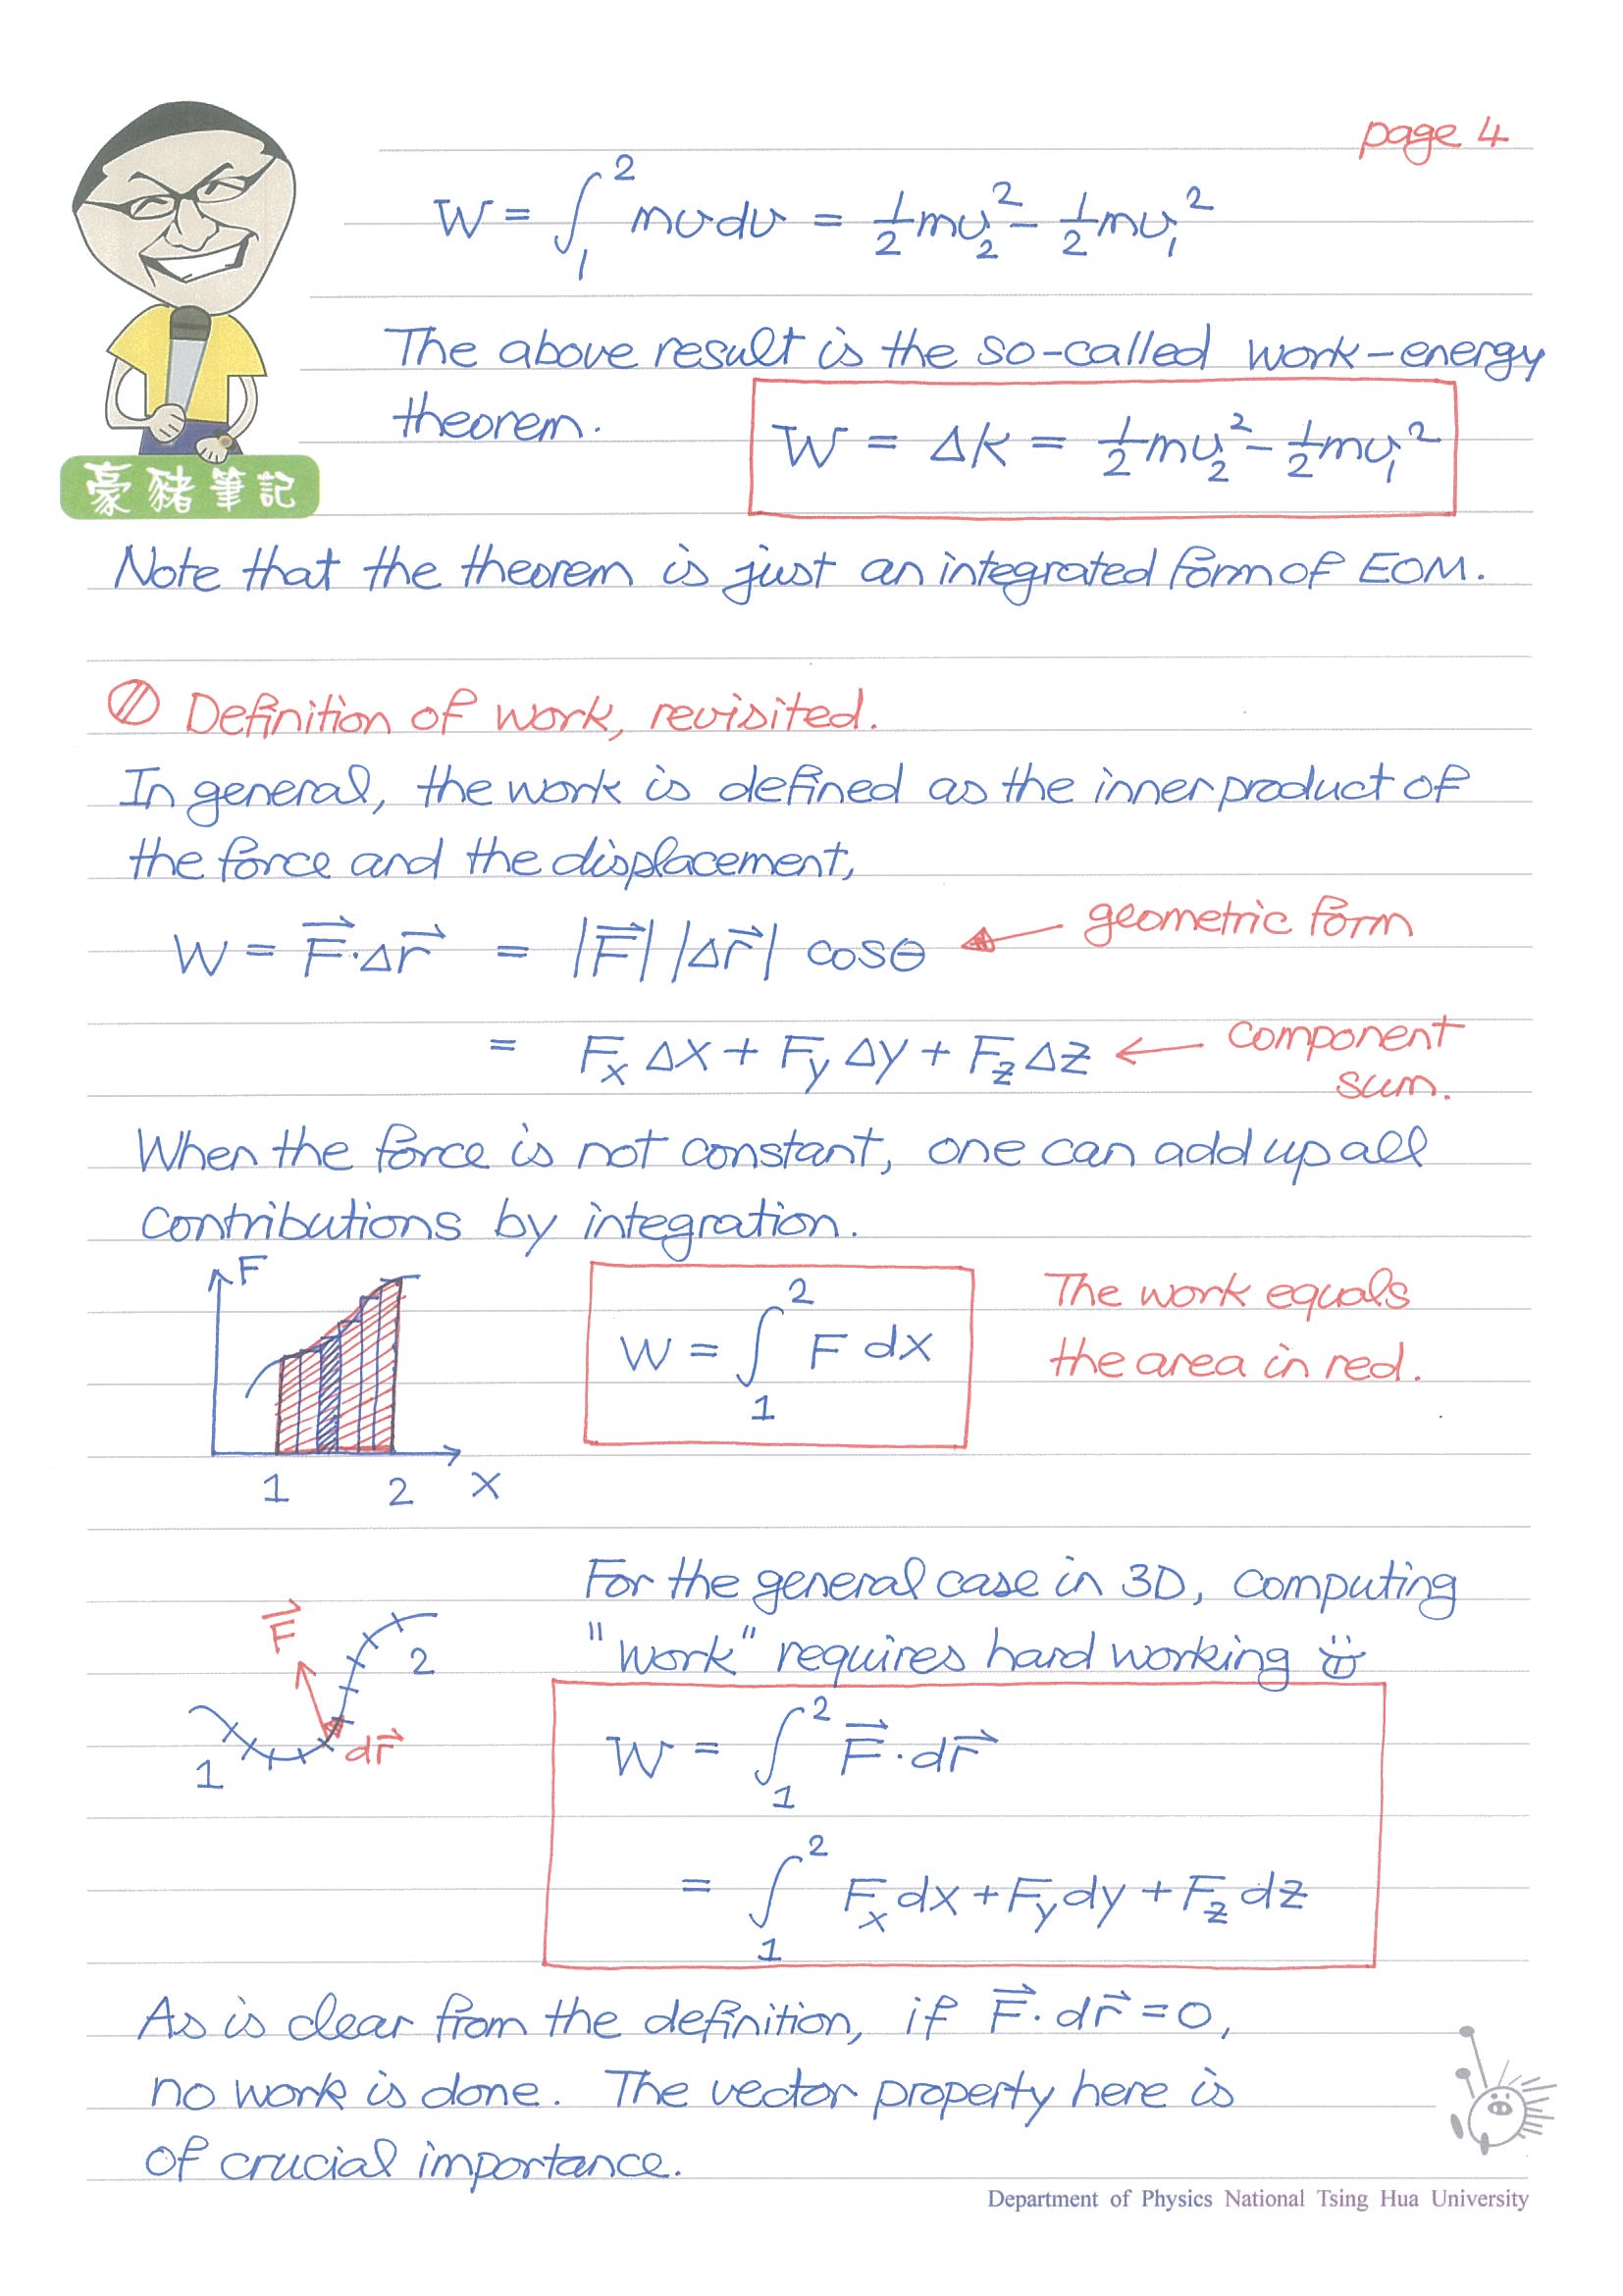 page 4
W = ∫₁² mvdv = ½mv₂² − ½mv₁²
The above result is the so-called work-energy
theorem.
W = Δk = ½mv₂² − ½mv₁²
豪豬筆記
Note that the theorem is just an integrated form of EOM.
Definition of work, revisited.
In general, the work is defined as the inner product of
the force and the displacement,
W = F⃗·Δr⃗ = |F⃗| |Δr⃗| cosθ ← geometric form
= Fₓ Δx + F_y Δy + F_z Δz ← component
sum.
When the force is not constant, one can add up all
contributions by integration.
F
1 2 x
W = ∫₁² F dx
The work equals
the area in red.
For the general case in 3D, computing
"work" requires hard working
F⃗
2
dr⃗
1
W = ∫₁² F⃗·dr⃗
= ∫₁² Fₓdx + F_ydy + F_zdz
As is clear from the definition, if F⃗·dr⃗ = 0,
no work is done. The vector property here is
of crucial importance.
Department of Physics National Tsing Hua University